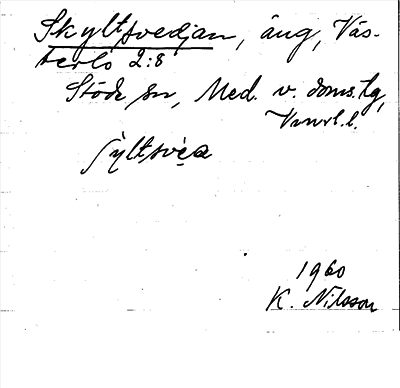 Skyltsvedjan, äng, Väs-
terlo 2:8
Stöde sn, Med. v. doms. tg,
Vnrl. l.
ʃyltsvèa
1960
K. Nilsson